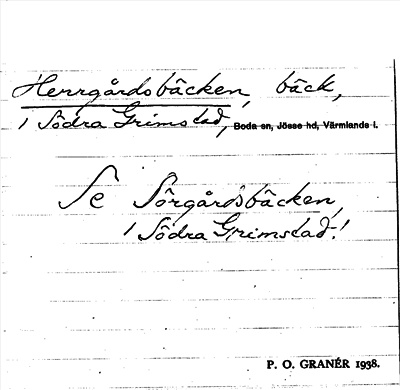 Herrgårdsbäcken, bäck,
i Södra Grimstad, Boda sn, Jösse hd, Värmlands l.
Se Sörgårdsbäcken,
i Södra Grimstad!
P. O. GRANÉR 1938.